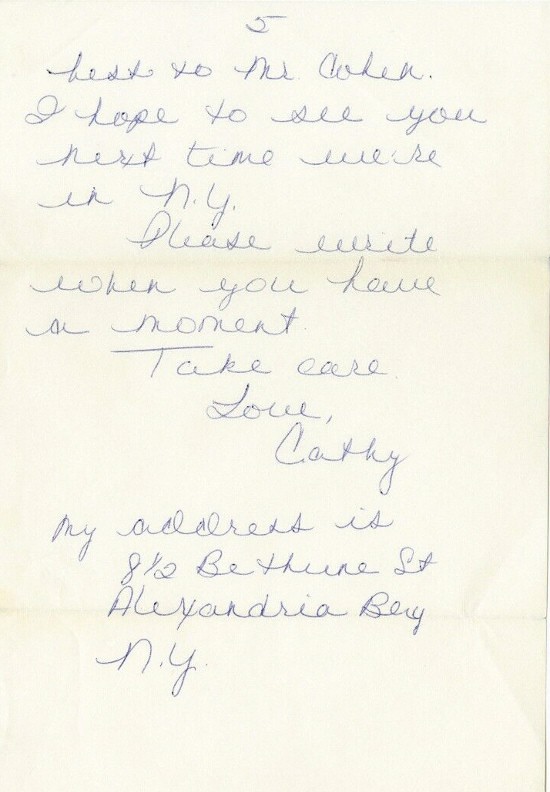 5
best to Mr. Cohen.
I hope to see you
next time we're
in N.Y.
Please write
when you have
a moment.
Take care.
Love,
Cathy
My address is
8½ Bethune St
Alexandria Bay
N.Y.